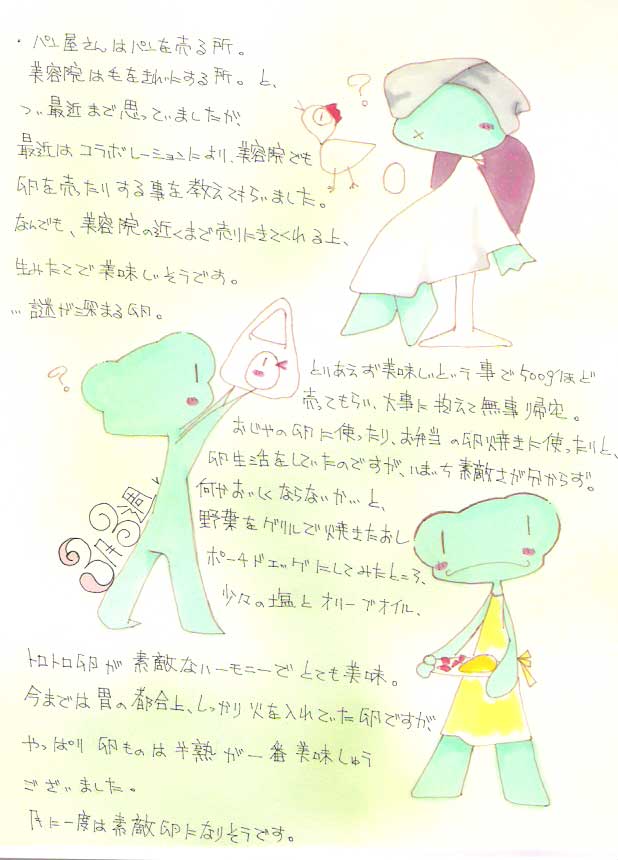 ・パン屋さんはパンを売る所。
美容院は毛をきれいにする所。と、
つい最近まで思っていましたが、
最近はコラボレーションにより、美容院でも
卵を売ったりする事を教えてもらいました。
なんでも、美容院の近くまで売りにきてくれる上、
生みたてで美味しそうです。
…謎が深まる卵。
?
?
とりあえず美味しいという事で500gほど
売ってもらい、大事に抱えて無事帰宅。
おじやの卵に使ったり、お弁当の卵焼きに使ったりと、
卵生活をしていたのですが、いまいち素敵さが分からず。
何かおいしくならないか…と、
野菜をグリルで焼きたおし
ポーチドエッグにしてみたところ、
少々の塩とオリーブオイル、
3月3週
トロトロ卵が素敵なハーモニーでとても美味。
今までは胃の都合上、しっかり火を入れていた卵ですが、
やっぱり卵ものは半熟が一番美味しゅう
ございました。
月に一度は素敵卵になりそうです。